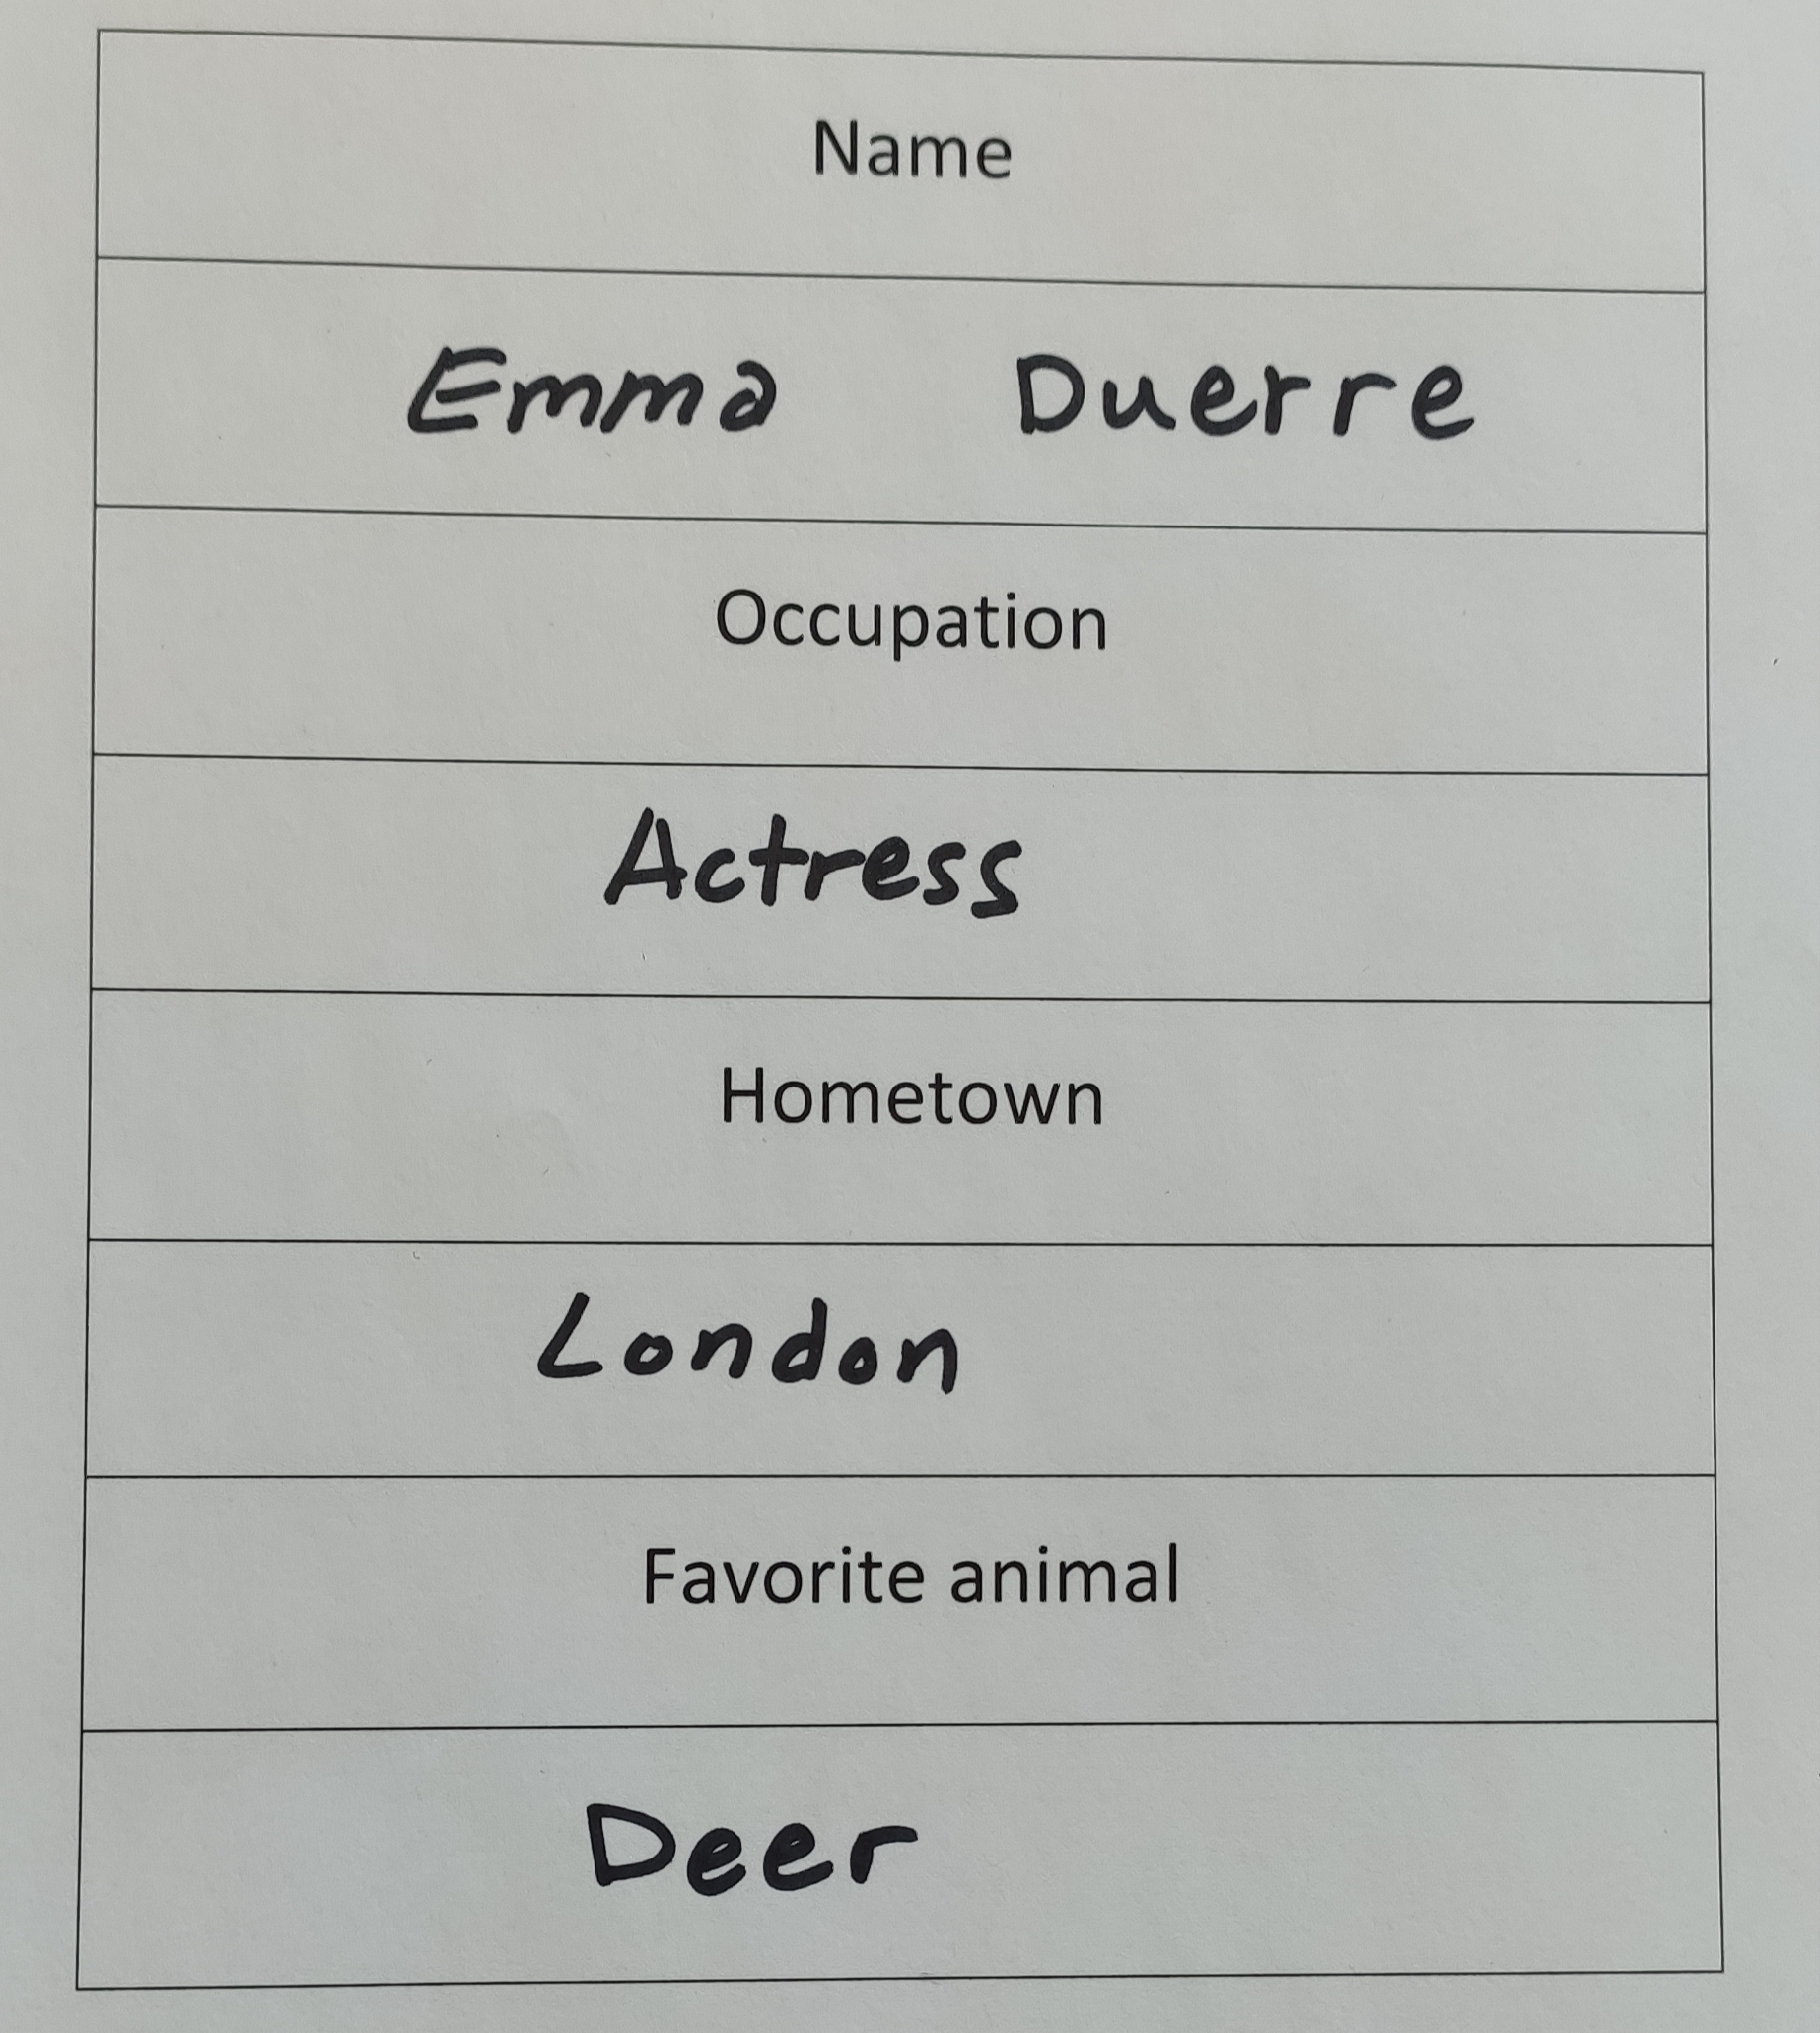 Name
Emma Duerre
Occupation
Actress
Hometown
London
Favorite animal
Deer